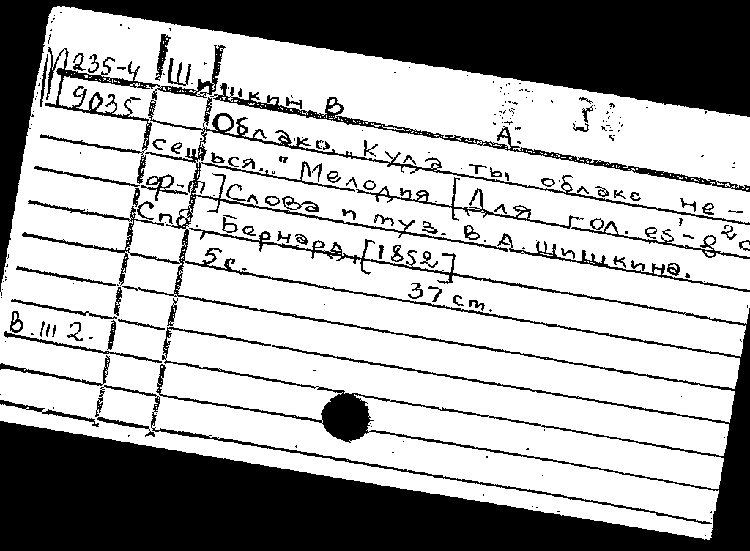 М 235-4
9035
Шишкин. В. А.
Облако. „Куда ты облако не-
сешься..." Мелодия [Для гол. es'-g²с
ф-п] Слова и муз. В. А. Шишкина.
Спб., Бернард, [1852]
5 с. 37 ст.
В. III 2.